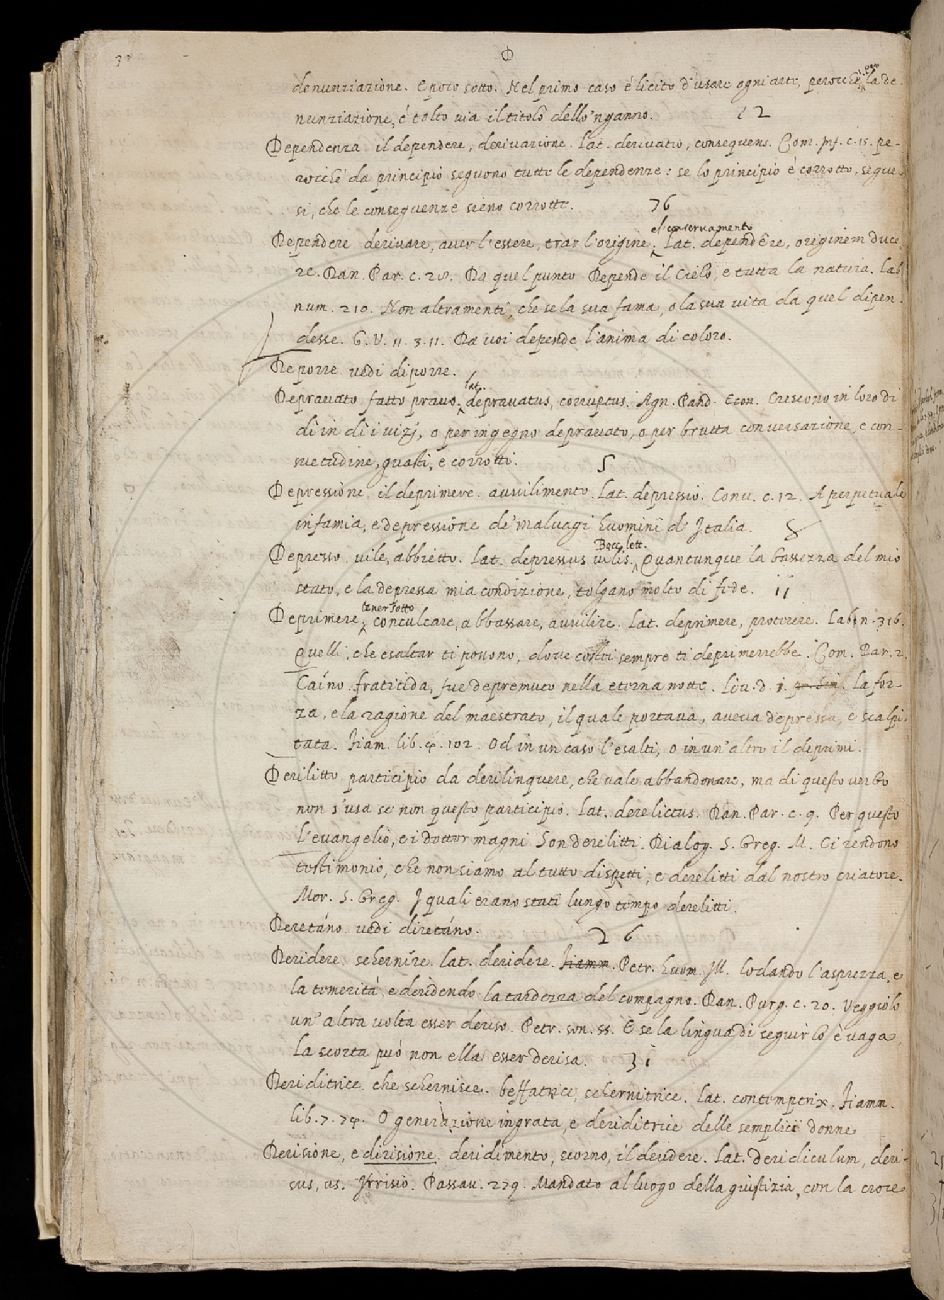 D
denunziazione. E poco sotto. Nel primo caso è licito d'usare ogni arte, perocchè la de
nunziazione, è tolto via il titolo dello 'nganno. 22
Dependenza il dependere, derivazione. Lat. derivatio, consequens. Com. pf. c. 15. pe-
rocchè da principio seguono tutte le dependenze: se lo principio è corrotto, segue-
si, che le conseguenze sieno corrotte. 76
el conservamento
Dependere derivare, aver l'essere, trar l'origine. Lat. dependēre, originem duce
re. Dan. Par. c. 28. Da quel punto Depende il Cielo, e tutta la natura. Lab
num. 210. Non altramenti, che se la sua fama, o la sua vita da quel dipen.
desse. G. V. 11. 3. 11. Da voi depende l'anima di coloro.
Deporre vedi diporre.
lat.
Depravato, fatto pravo. depravatus, corruptus. Agn. Pand. Econ. Crescono in loro di
dì in dì i vizj, o per ingegno depravato, o per brutta conversazione, e con-
suetudine, guasti, e corrotti. 5
Depressione il deprimere. avvilimento. Lat. depressio. Conv. c. 12. A perpetuale
infamia, e depressione de' malvagi huomini d' Italia. 8
Bocc. lett.
Depresso vile, abbietto. Lat. depressus vilis. Quantunque la bassezza del mio
stato, e la depressa mia condizione, tolgano molto di fede. 11
tener sotto
Deprimere, conculcare, abbassare, avvilire. Lat. deprimere, proterere. Labin. 316.
Quelli, che esaltar ti possono, dove costi sempre ti deprimerrebbe. Com. Par. 2.
Caino fraticida, fue depremuto nella eterna notte. Liv. d. 1. La for-
za, e la ragione del maestrato, il quale portava, aveva depressa, e scalpi.
tata. Fiam. lib. 4. 102. Od in un caso l'esalti, o in un' altro il deprimi.
Derilitto participio da derilinquere, che vale abbandonare, ma di questo verbo
non s'usa se non questo participio. Lat. derelictus. Dan. Par. c. 9. Per questo
l'evangelio, e i dottor magni Son derelitti. Dialog. S. Greg. M. Ci rendono
testimonio, che non siamo al tutto dispetti, e derelitti dal nostro criatore.
Mor. S. Greg. I quali erano stati lungo tempo derelitti.
Deretáno vedi diretáno. 26
Deridere. schernire. Lat. deridere. Fiamm. Petr. huom. Ill. Lodando l'asprezza, e
la temerità, e deridendo la tardezza del compagno. Dan. Purg. c. 20. Veggiolo
un' altra volta esser deriso. Petr. son. 55. E se la lingua di seguirlo è vaga,
La scorta può non ella esser derisa. 31
Deriditrice che schernisce. beffatrice, schernitrice. Lat. contemptrix. Fiamm.
lib. 7. 74. O generazione ingrata, e deriditrice delle semplici donne
Derisione, e dirisione. deridimento, scorno, il deridere. Lat. deridiculum, deri-
sus, us. Irrisio. Passav. 279. Mandato al luogo della giustizia, con la croce